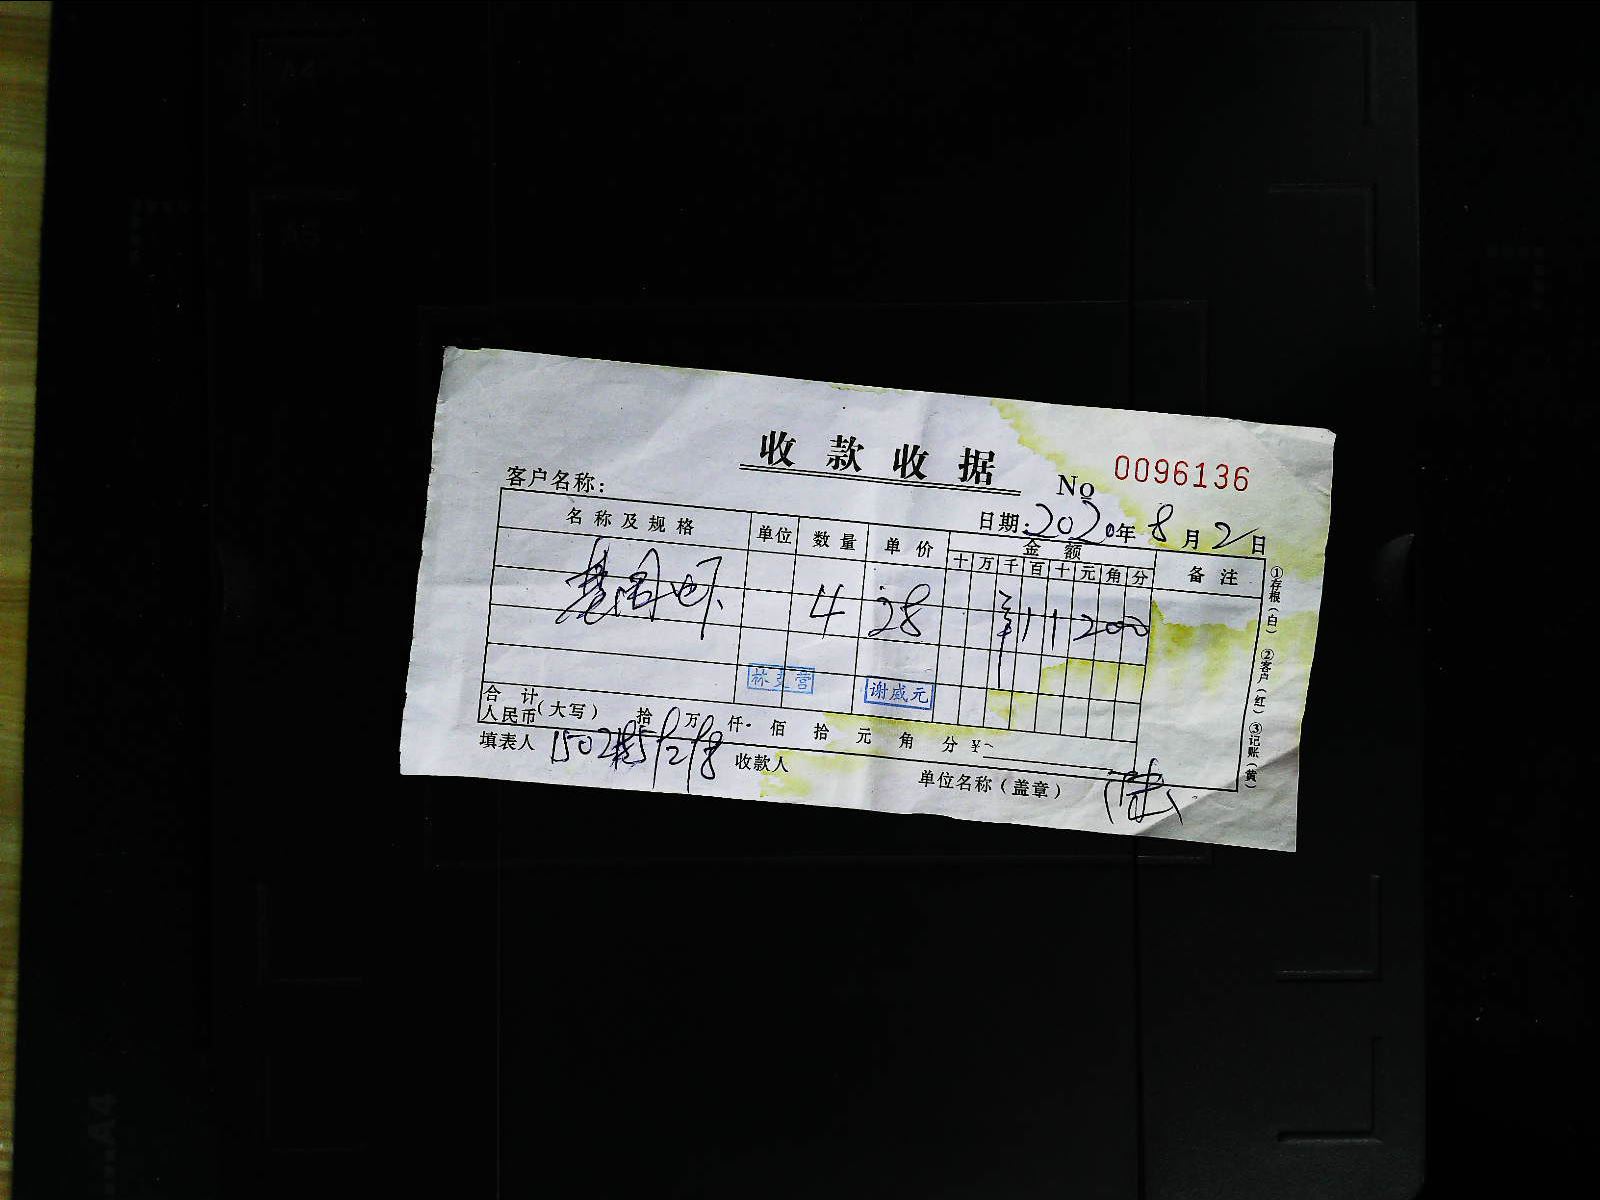 收款收据
No 0096136
客户名称:
日期: 2020年 8月 2日
名称及规格 单位 数量 单价 金额 备注
十 万 千 百 十 元 角 分
基围虾 4 28 11200
林 营 谢咸元
合计
人民币(大写) 拾 万 仟 佰 拾 元 角 分 ¥
填表人 收款人 单位名称(盖章)
①存根(白) ②客户(红) ③记账(黄)
A4
A5
A4